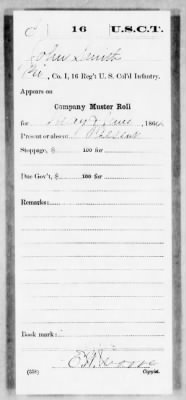 C | 16 | U.S.C.T.
John Smith
Pvt, Co. I, 16 Reg't U. S. Col'd Infantry.
Appears on
Company Muster Roll
for May & June, 1864.
Present or absent Present
Stoppage, $ 100 for
Due Gov't, $ 100 for
Remarks:
Book mark:
(358) Copyist.